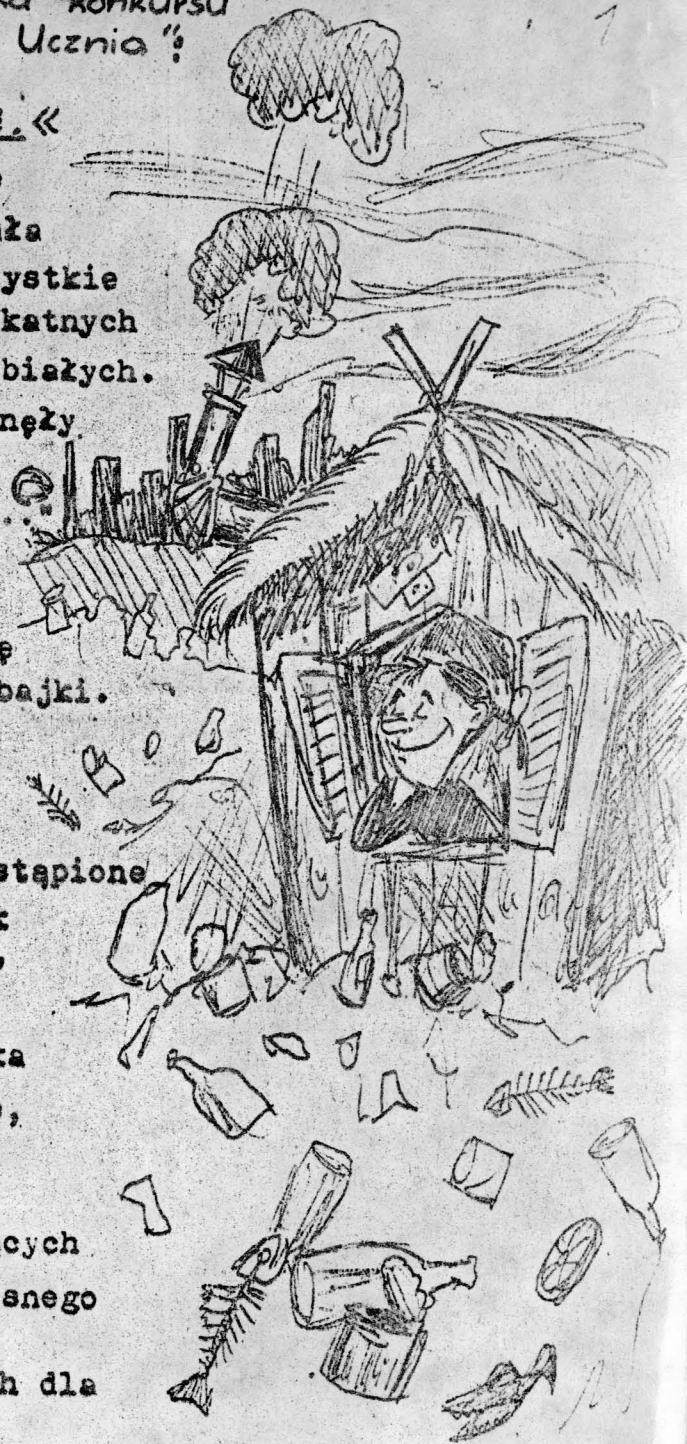 konkursu
1
Ucznia":
«
ystkie
katnych
białych.
nęły
ę
bajki.
stąpione
ka
cych
snego
h dla